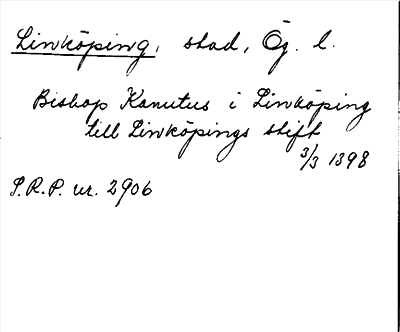 Linköping, stad, Ög. l.
Biskop Kanutus i Linköping
till Linköpings stift
3/3 1398
S.R.P. nr. 2906